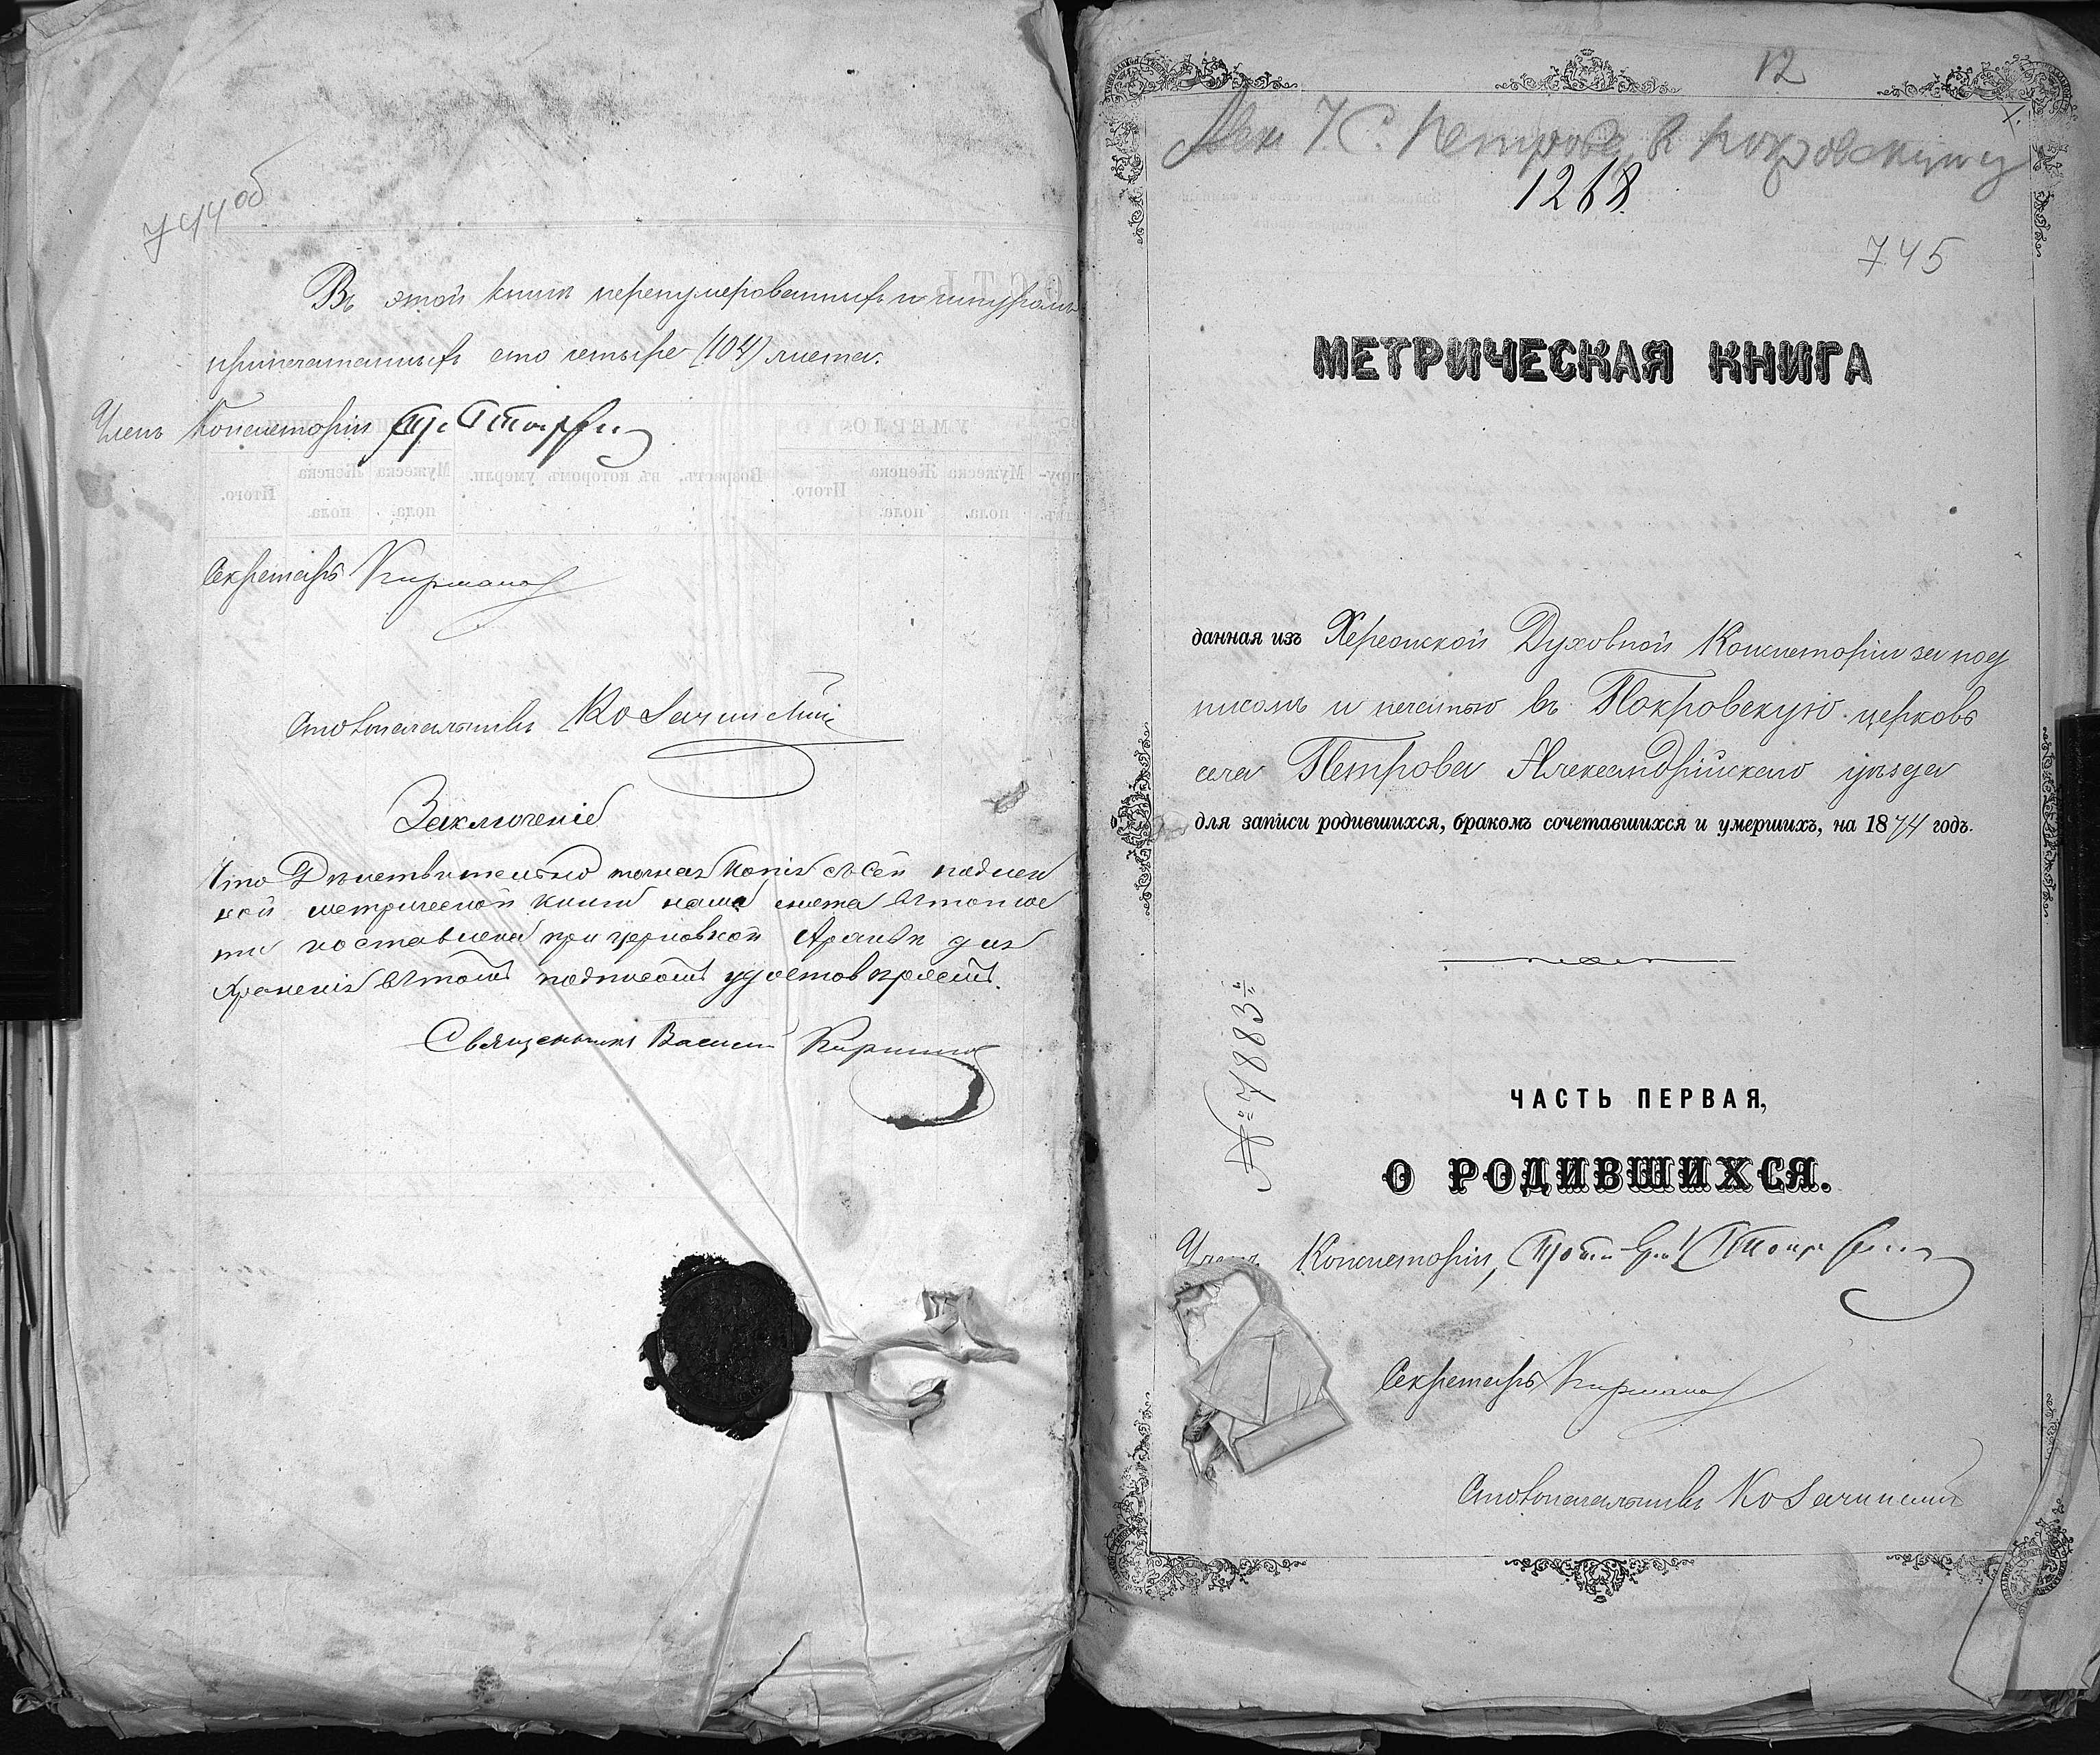 744 об
Въ этой книгѣ перенумерованныхъ и шнуромъ
припечатанныхъ сто четыре (104) листа.
Членъ Консисторіи
Секретарь
Столоначальникъ
Заключеніе
Что Дѣйствительно точная Копія съ сей подлин
ной метрической книги на листа въ
оставлена при церковной Архивѣ для
Храненія въ томъ подписомъ удостовѣряемъ.
Священникъ Василій
12
Алек. У. С. Петрово, в Покровскую
1268
745
МЕТРИЧЕСКАЯ КНИГА
данная изъ Херсонской Духовной Консисторіи за под
писомъ и печатью въ Покровскую церковь
села Петрова Александрійскаго уѣзда
для записи родившихся, бракомъ сочетавшихся и умершихъ, на 1874 годъ.
№ 7883
ЧАСТЬ ПЕРВАЯ,
О РОДИВШИХСЯ.
Членъ Консисторіи,
Секретарь
Столоначальникъ